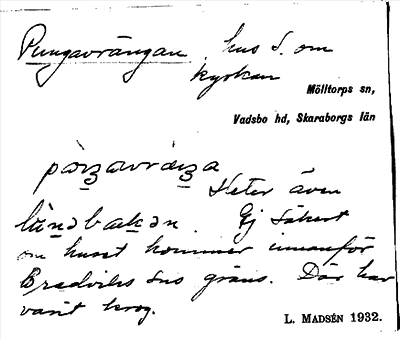 Pungavrängan. hus S. om
kyrkan
Mölltorps sn,
Vadsbo hd, Skaraborgs län
Heter även
Ej säkert
om huset kommer innanför
Bredviks sns gräns. Där har
varit krog.
L. MADSÉN 1932.